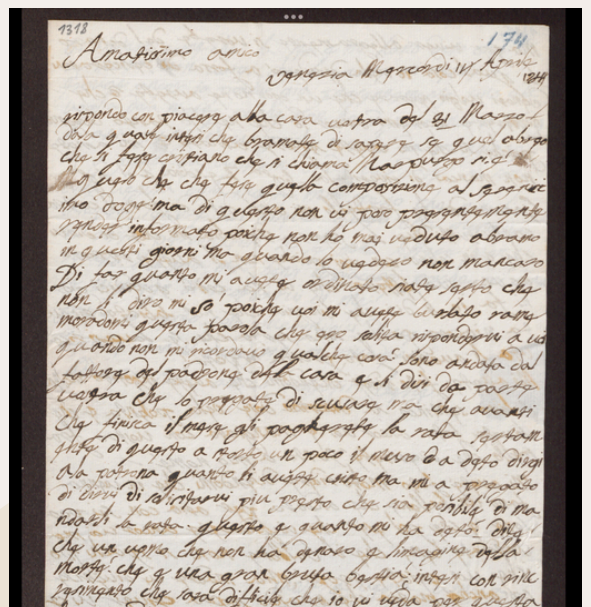 1318
174
Amatissimo amico
Venezia Mercordi Aprile
rispondo con piacere alla cara vostra del 21 Marzo
dala quale intesi che bramate di sapere se quel abreo
che si fece cristiano che si chiama
vero che che fece quella composizione al
imo doge ma di questo non vi poso
render informato poiche non ho mai veduto abramo
in questi giorni ma quando lo vedero non mancaro
Di far quanto mi avete ordinato siate certo che
non li diro mi so poiche voi mi avete burlato rame
morandomi questa parola che ero solita rispondervi a voi
quando non mi ricordavo qualche cosa sono andata dal
fattore del padrone dela casa e li disi da parte
vostra che lo pregate di scusare ma che avanti
che finisca il mese gli pagherete la rata
di questo a storto un poco il muso e a deto
ala patrona quanto li avete scrito ma mi a pregato
di dirvi di solicitarvi piu presto che sia posibile di ma
ndarli la rata. questo e quanto mi ha detto
che un uomo che non ha denaro e l'imagine dela
morte che e una gran bruta bestia intesi con
che sara dificile che io vi veda per questa